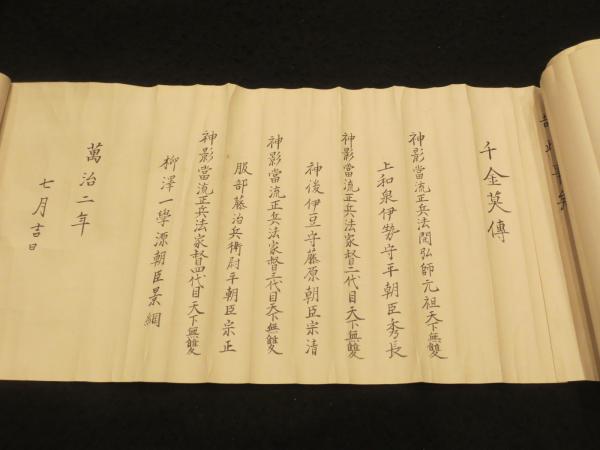 千金莫傳
神影當流正兵法開弘師元祖天下無雙
上和泉伊勢守平朝臣秀長
神影當流正兵法家督二代目天下無雙
神後伊豆守藤原朝臣宗清
神影當流正兵法家督三代目天下無雙
服部藤治兵衛尉平朝臣宗正
神影當流正兵法家督四代目天下無雙
柳澤一學源朝臣景綱
萬治二年
七月吉日